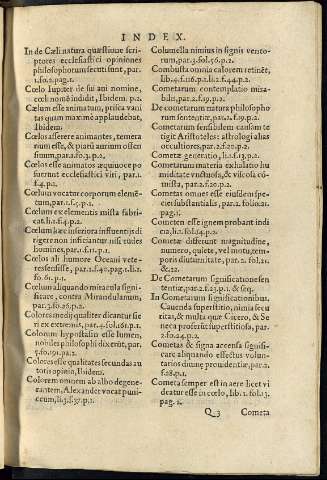 INDEX.
In de Cæli natura quæstione scri-
ptores ecclesiastici opiniones
philosophorum secuti sunt, par.
1.fo.2.pag.1.
Cœlo Iupiter de sui aui nomine,
cœli nomē indidit, Ibidem. p.2.
Cœlum esse animatum, prisca vani
tas quam maxime applaudebat,
Ibidem.
Cœlos asserere animantes, temera
rium esse, & parū aurium offen
siuum, par.1.fo.3.p.2.
Cœlos esse animatos æquiuoce po
suerunt ecclesiastici viri, par.1.
f.4.p.1.
Cœlum vocatur corporum elemē-
tum, par.1.f.5.p.1.
Cœlum ex elementis mista fabri-
cat.
Cœlum hæc inferiora influentijs di
rigere non inficiantur nisi rudes
homines, par.1.f.11.p.1.
Cœlos ali humore Oceani vete-
res
Cœlum aliquando miracula signi-
ficare, contra Mirandulanum,
par.3.
Colores medij qualiter dicantur fie
ri ex extremis, par.4.
Colorum hypostasim esse lumen,
nobiles philosophi dixerūt, par.
5.fo.191.p.2.
Colores esse qualitates secundas au
totis opinio, Ibidem.
Colorem omnem ab albo degene-
rantem, Alexander vocat puni-
ceum, li.3.f.37.p.1.
Columella nimius in signis vento-
rum, par.3.fol.56.p.2.
Combusta omnia calorem retinēt,
Cometarum contemplatio mira
bilis, par.2.f.19.p.2.
De cometarum natura philosopho
rum sententiæ, par.2.f.19.p.2.
Cometarum sensibilem causam te
tigit Aristoteles: astrologi alias
occultiores, par.2.f.20.p.2.
Cometæ generatio, li.1.f.13.p.2.
Cometarum materia exhalatio hu
miditate vnctuosa, & viscosa cō-
mista, par.2.f.20.p.2.
Cometas omnes esse eiusdem spe-
ciei substantialis, par.2. folio.21.
pag.1.
Cometen esse ignem probant indi
cia, li.1.fol.14.p.2.
Cometæ differunt magnitudine,
numero, quiete, vel motu, tem-
poris diuturnitate, par.2. fol.21.
&.22.
De Cometarum significatione sen
tentiæ, par.2.f.23.p.1. & seq.
In Cometarum significationibus
Cauenda superstitio, nimis secu
ritas, & multa quæ Cicero, & Se
neca proferūt superstitiosa, par.
2.f.24.p.2.
Cometas & signa accensa signifi-
care aliquando effectus volun-
tarios diuinę prouidentiæ, par.2.
f.28.p.1.
Cometa semper est in aere licet vi
deatur esse in cœlo, lib.1.fol.13.
pag.2.
Q 3 Cometa